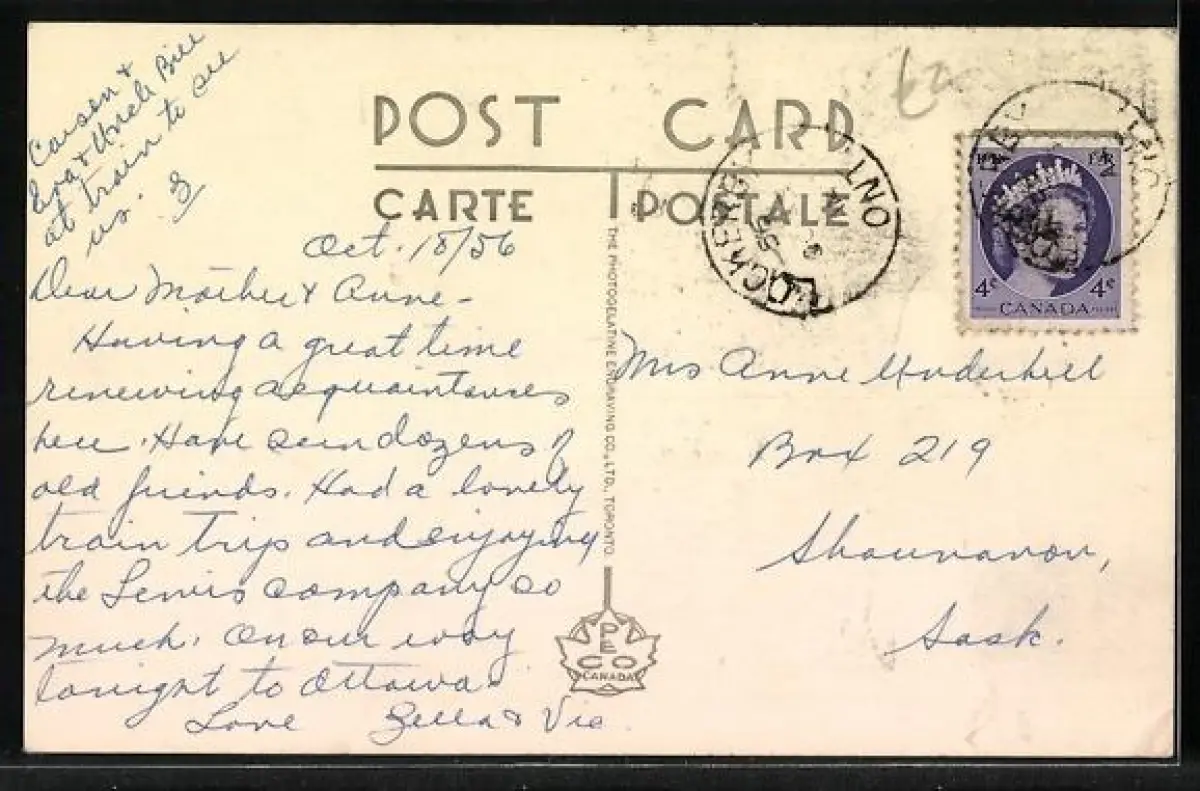 Carson &
Eva & Uncle Bill
at train to see
us. Z
POST CARD
CARTE POSTALE
Oct. 18/56
Dear Mother & Anne -
Having a great time
renewing acquaintances
here. Have seen dozens of
old friends. Had a lovely
train trip and enjoying
the Lewis company so
much. On our way
tonight to Ottawa.
Love Zella & Vic.
THE PHOTOGELATINE ENGRAVING CO., LTD., TORONTO
PECO
CANADA
ONT
56
4c CANADA 4c
Mrs Anne Underhill
Box 219
Shaunavon,
Sask.